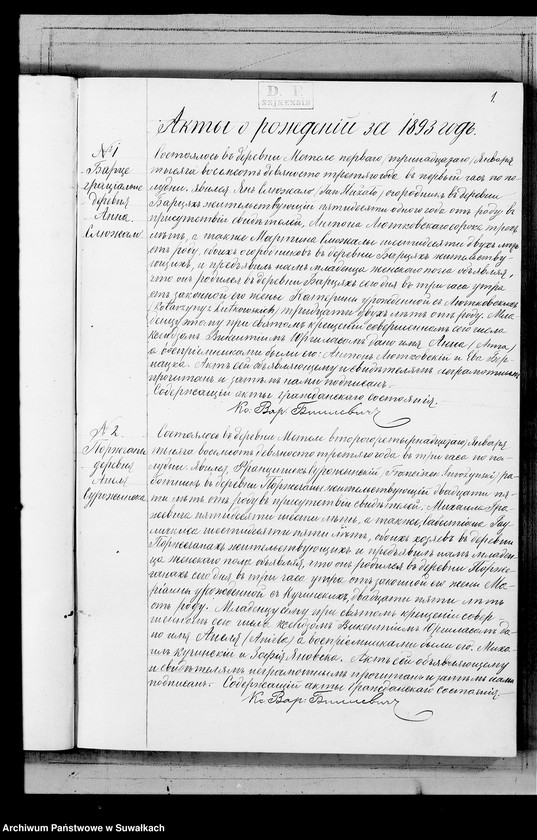 1.
D. P.
Акты о рожденій за 1893 годъ.
№ 1
Барце
деревня
Анна
Слюжала
Состоялось въ деревни Метеле перваго /тринадцатаго/ Января
тысяча восемьсотъ девяносто третьяго года въ первый часъ по по-
лудни. Явился Янъ Слюжало /Jan /, огородникъ въ деревни
Барцяхъ жительствующій пятидесяти одного года отъ роду въ
присутствіи свидѣтелей, Антона Лютковскаго сорока трехъ
лѣтъ, а также Мартина Слюжалы шестидесяти двухъ лѣтъ
отъ роду, обоихъ огородниковъ въ деревни Барцяхъ жительству-
ющихъ, и предъявилъ намъ младенца женскаго пола объявляя,
что онъ родился въ деревни Барцяхъ сего дня въ три часа утра
отъ законной его жены Катерины урожденной съ Лютковскихъ
/Katarzyny z Lutkowskich/ тридцати двухъ лѣтъ отъ роду. Мла-
денцу этому при святомъ крещеніи совершенномъ сего числа
Ксендзомъ Викентіемъ дано имя Анна /Anna/
а воспріемниками были его: Антонъ Лютковскій и Ева
Актъ сей объявляющему и свидѣтелямъ неграмотнымъ
прочитанъ и затѣмъ нами подписанъ.
Содержащій акты гражданскаго состоянія.
Кс. Вар.
№ 2.
деревня
Анеля
Состоялось въ деревни Метеле втораго /четырнадцатаго/ Января
тысяча восемьсотъ девяносто третьяго года въ три часа по по-
лудни. Явился, Францишекъ /Franciszek / ра-
ботникъ въ деревни жительствующій двадцати пя-
ти лѣтъ отъ роду въ присутствіи свидѣтелей, Михаила
пятидесяти шести лѣтъ, а также,
шестидесяти пяти лѣтъ, обоихъ хозяевъ въ деревни
жительствующихъ и предъявилъ намъ младен-
ца женскаго пола объявляя, что онъ родился въ деревни
сего дня, въ три часа утра отъ законной его жены Ма-
ріанны урожденной съ Кучинскихъ, двадцати пяти лѣтъ
отъ роду. Младенцу сему при святомъ крещеніи совер-
шенномъ сего числа Ксендзомъ Викентіемъ да-
но имя Анеля /Aniela/ а воспріемниками были его: Миха-
илъ Кучинскій и Зофія Яновска. Актъ сей объявляющему
и свидѣтелямъ неграмотнымъ прочитанъ и затѣмъ нами
подписанъ. Содержащій акты гражданскаго состоянія.
Кс. Вар.
Archiwum Państwowe w Suwałkach